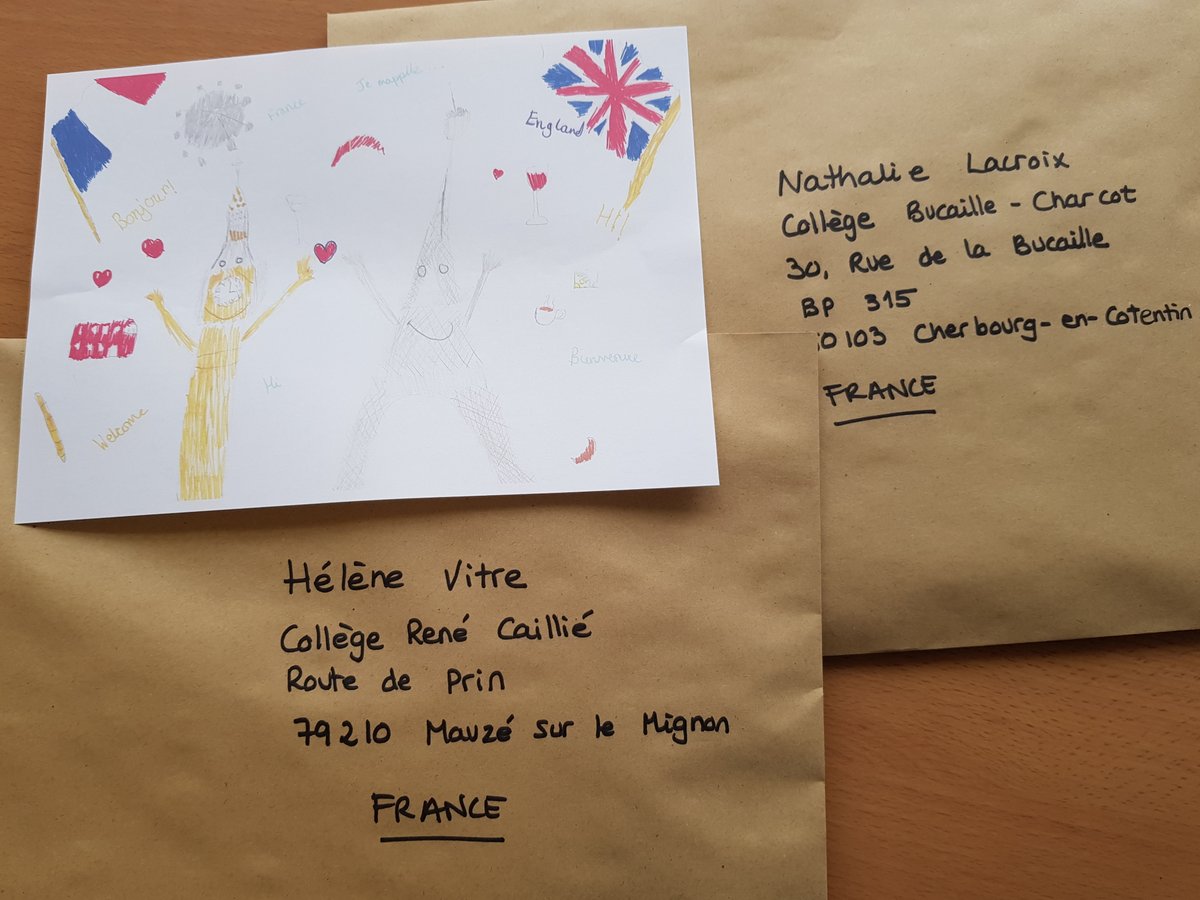 Je mappelle ...
France
England
Bonjour!
Hi!
Bienvenue
Hi
Welcome
Nathalie Lacroix
Collège Bucaille - Charcot
30, Rue de la Bucaille
BP 315
0103 Cherbourg-en-Cotentin
FRANCE
Hélène Vitre
Collège René Caillié
Route de Prin
79210 Mauzé sur le Mignon
FRANCE